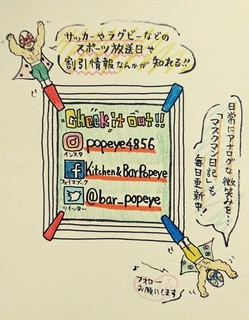 サッカーやラグビーなどの
スポーツ放送日や
割引情報なんかが
知れる!!
Check it out!!
popeye4856
インスタ
Kitchen & Bar Popeye
フェイスブック
@bar_popeye
ツイッター
日常にアナログな微笑みを…
「マスクマン日記」も
毎日更新中!
フォロー
お願いします